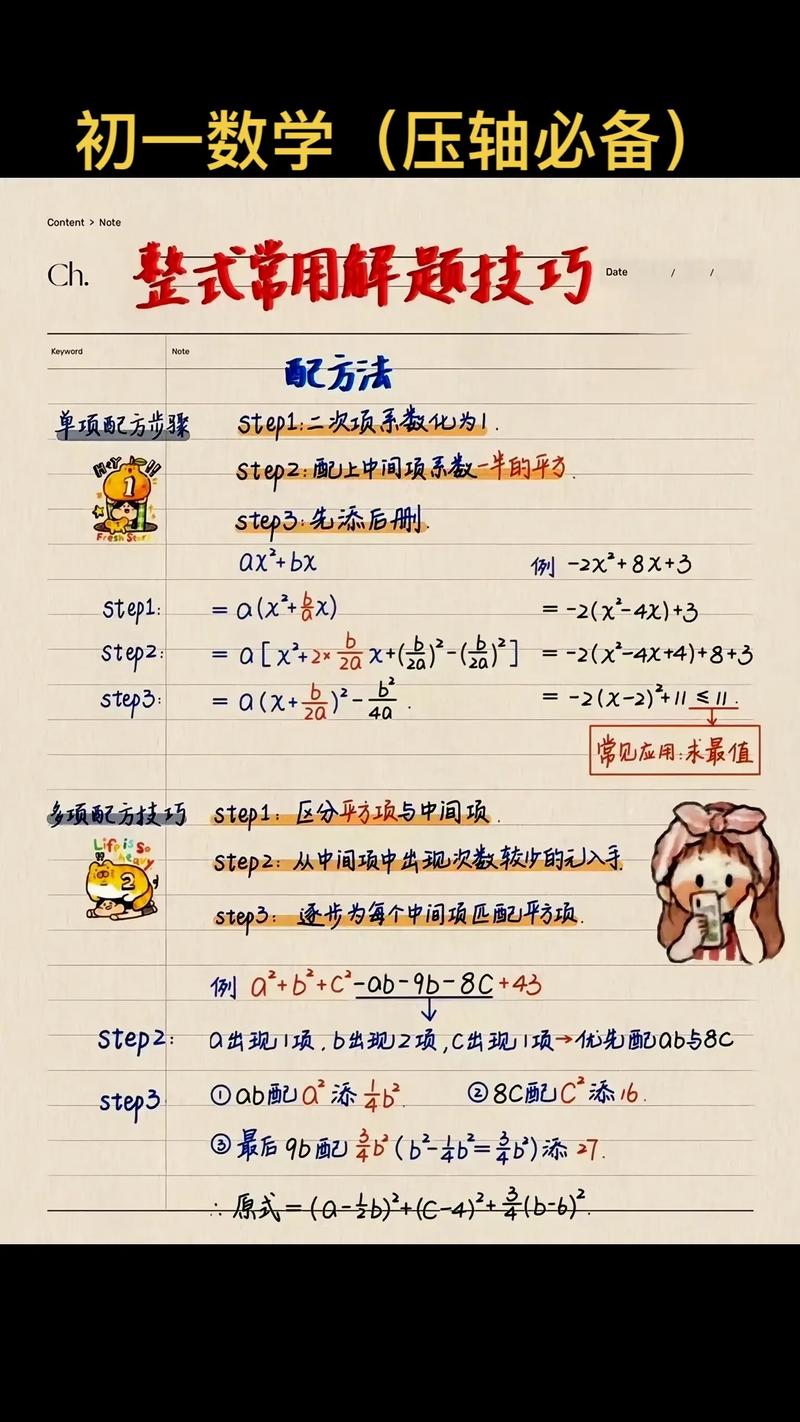 初一数学（压轴必备）
Content > Note
Ch. 整式常用解题技巧 Date / /
Keyword Note
配方法
单项配方步骤 step1:二次项系数化为1.
step2:配上中间项系数一半的平方.
step3:先添后删.
Hey !!
1
Fresh Start
ax²+bx 例 -2x²+8x+3
step1: = a(x²+b/a x) = -2(x²-4x)+3
step2: = a[x²+2×b/2a x+(b/2a)²-(b/2a)²] = -2(x²-4x+4)+8+3
step3: = a(x+b/2a)²-b²/4a. = -2(x-2)²+11 ≤11.
常见应用:求最值
多项配方技巧 step1: 区分平方项与中间项.
Life is So heavy
2
step2: 从中间项中出现次数较少的元入手.
step3: 逐步为每个中间项匹配平方项.
例 a²+b²+c²-ab-9b-8c+43
step2: a出现1项,b出现2项,c出现1项→优先配ab与8c
step3 ①ab配a²添1/4b². ②8c配c²添16.
③最后9b配3/4b²(b²-1/4b²=3/4b²)添27.
∴原式=(a-1/2b)²+(c-4)²+3/4(b-6)².